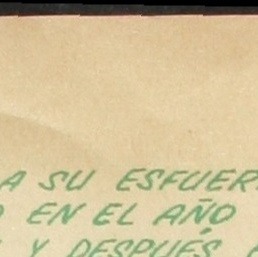 A SU ESFUER
EN EL AÑO
Y DESPUÉS